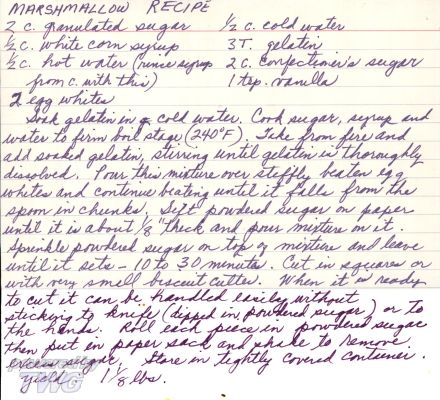 MARSHMALLOW RECIPE
2 c. granulated sugar ½ c. cold water
½ c. white corn syrup 3 T. gelatin
½ c. hot water (rinse syrup 2 c. confectioner's sugar
from c. with this) 1 tsp. vanilla
2 egg whites
Soak gelatin in cold water. Cook sugar, syrup and
water to firm boil stage (240°F). Take from fire and
add soaked gelatin, stirring until gelatin is thoroughly
dissolved. Pour this mixture over stiffly beaten egg
whites and continue beating until it falls from the
spoon in chunks. Sift powdered sugar on paper
until it is about ⅛" thick and pour mixture on it.
Sprinkle powdered sugar on top of mixture and leave
until it sets - 10 to 30 minutes. Cut in squares or
with very small biscuit cutter. When it is ready
to cut it can be handled easily without
sticking to knife (dipped in powdered sugar) or to
the hands. Roll each piece in powdered sugar
then put in paper sack and shake to remove
excess sugar. Store in tightly covered container.
yield 1⅛ lbs.